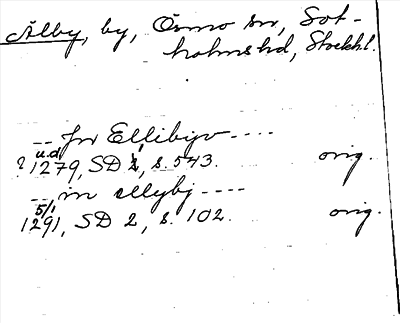 Älby, by, Ösmo sn, Sot-
holms hd, Stockhl.
-- jn Ellibyr ----
u.d.
? 1279, SD 1, s. 573. orig.
-- in ellyby ----
5/1
1291, SD 2, s. 102. orig.